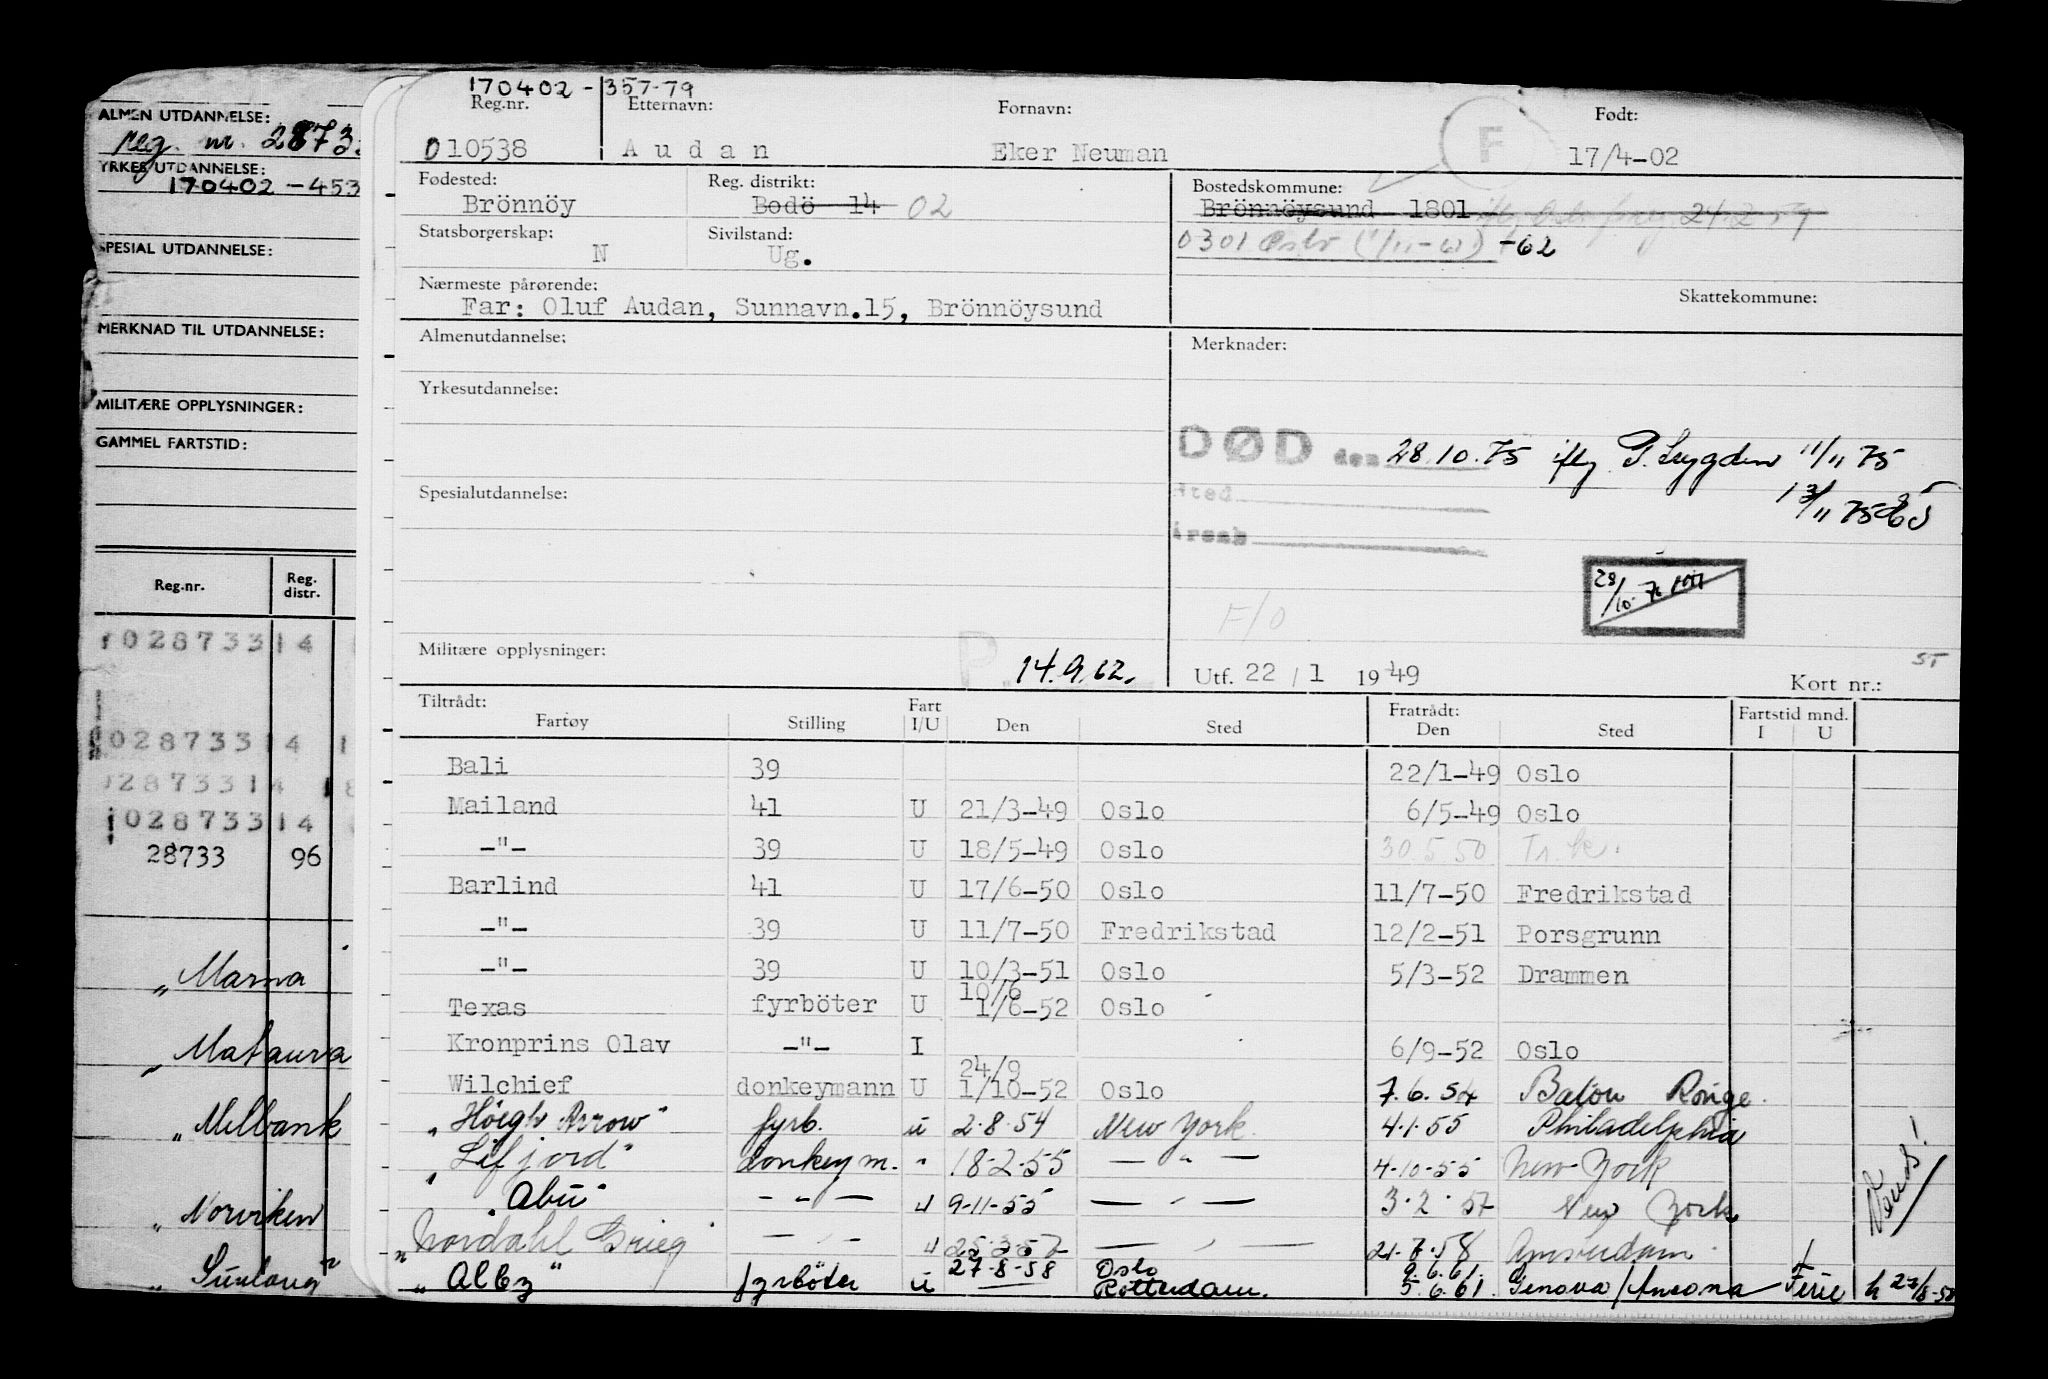 ALMEN UTDANNELSE:
reg. nr. 2873
YRKES UTDANNELSE:
170402-453
SPESIAL UTDANNELSE:
MERKNAD TIL UTDANNELSE:
MILITÆRE OPPLYSNINGER:
GAMMEL FARTSTID:
Reg.nr. Reg. distr.
102873314
02873314 1
02873314 18
102873314
28733 96
„ Marna
„ Mataura
„ Melbank
„ Norviken
„ Sunlong"
170402 - 357-79
Reg.nr. Etternavn: Fornavn: Født:
010538 Audan Eker Neuman F 17/4-02
Fødested: Reg. distrikt: Bostedskommune:
Brönnöy Bodö 14 02 Brönnöysund 1801 24-2-59
Statsborgerskap: Sivilstand: 0301 Oslo (1/11-61) +62
N Ug.
Nærmeste pårørende: Skattekommune:
Far: Oluf Audan, Sunnavn.15, Brönnöysund
Almenutdannelse: Merknader:
Yrkesutdannelse:
DØD den 28.10.75 iflg P. Lygden 11/11 75
13/11 75
Spesialutdannelse: Sted
Årsak
28/10-76
F/O
Militære opplysninger: P. 14.9.62. Utf. 22 / 1 1949 Kort nr.:
ST
Tiltrådt: Fratrådt: Fartstid mnd.
Fartøy Stilling Fart I/U Den Sted Den Sted I U
Bali 39 22/1-49 Oslo
Mailand 41 U 21/3-49 Oslo 6/5-49 Oslo
-"- 39 U 18/5-49 Oslo 30.5.50 Tr.h.
Barlind 41 U 17/6-50 Oslo 11/7-50 Fredrikstad
-"- 39 U 11/7-50 Fredrikstad 12/2-51 Porsgrunn
-"- 39 U 10/3-51 Oslo 5/3-52 Drammen
10/6
Texas fyrböter U 1/6-52 Oslo
Kronprins Olav -"- I 6/9-52 Oslo
24/9
Wilchief donkeymann U 1/10-52 Oslo 7.6.54 Baton Rouge.
„ Höegh Arrow" fyrb. u 2.8.54 New York. 4.1.55 Philadelphia
„ Lifjord" donkeym. " 18-2-55 — " — 4-10-55 New York
„ Abu" — " — u 9-11-55 — " — 3.2.57 New York
„ Nordahl Grieg — " — u 25.3.57 — " — 21.7.58 Amsterdam.
27-8-58 Oslo 9.6.61.
„ Alby" fyrböter u — Rotterdam. 5.6.61. Genova/Ancona Ferie h 27/8-58
Vend!